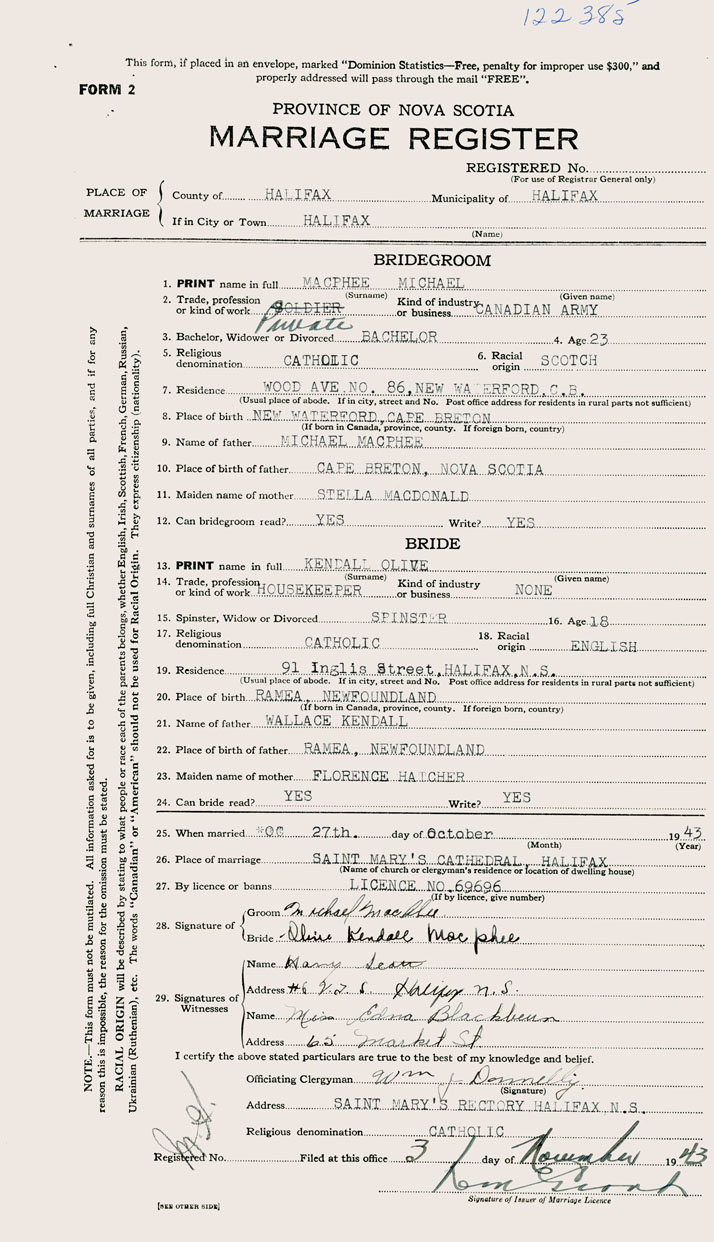 122 385
This form, if placed in an envelope, marked "Dominion Statistics—Free, penalty for improper use $300," and
properly addressed will pass through the mail "FREE".
FORM 2
PROVINCE OF NOVA SCOTIA
MARRIAGE REGISTER
REGISTERED No.
(For use of Registrar General only)
PLACE OF MARRIAGE
County of HALIFAX Municipality of HALIFAX
If in City or Town HALIFAX
(Name)
BRIDEGROOM
1. PRINT name in full MACPHEE MICHAEL
(Surname) (Given name)
2. Trade, profession or kind of work SOLDIER Private Kind of industry or business CANADIAN ARMY
3. Bachelor, Widower or Divorced BACHELOR 4. Age 23
5. Religious denomination CATHOLIC 6. Racial origin SCOTCH
7. Residence WOOD AVE.NO. 86,NEW WATERFORD,C.B.
(Usual place of abode. If in city, street and No. Post office address for residents in rural parts not sufficient)
8. Place of birth NEW WATERFORD,CAPE BRETON
(If born in Canada, province, county. If foreign born, country)
9. Name of father MICHAEL MACPHEE
10. Place of birth of father CAPE BRETON, NOVA SCOTIA
11. Maiden name of mother STELLA MACDONALD
12. Can bridegroom read? YES Write? YES
BRIDE
13. PRINT name in full KENDALL OLIVE
(Surname) (Given name)
14. Trade, profession or kind of work HOUSEKEEPER Kind of industry or business NONE
15. Spinster, Widow or Divorced SPINSTER 16. Age 18
17. Religious denomination CATHOLIC 18. Racial origin ENGLISH
19. Residence 91 Inglis Street,HALIFAX,N.S.
(Usual place of abode. If in city, street and No. Post office address for residents in rural parts not sufficient)
20. Place of birth RAMEA, NEWFOUNDLAND
(If born in Canada, province, county. If foreign born, country)
21. Name of father WALLACE KENDALL
22. Place of birth of father RAMEA, NEWFOUNDLAND
23. Maiden name of mother FLORENCE HATCHER
24. Can bride read? YES Write? YES
25. When married 27th. day of October 1943
(Month) (Year)
26. Place of marriage SAINT MARY'S CATHEDRAL, HALIFAX
(Name of church or clergyman's residence or location of dwelling house)
27. By licence or banns LICENCE NO.69696
(If by licence, give number)
28. Signature of
Groom Michael MacPhee
Bride Olive Kendall Mac phee
29. Signatures of Witnesses
Name Harry
Address #6 N.S.
Name Miss Edna Blackburn
Address 65 Market St.
I certify the above stated particulars are true to the best of my knowledge and belief.
Officiating Clergyman Wm J. Donnelly
(Signature)
Address SAINT MARY'S RECTORY HALIFAX N.S.
Religious denomination CATHOLIC
Registered No. Filed at this office 3 day of November 1943
Signature of Issuer of Marriage Licence
[SEE OTHER SIDE]
NOTE.—This form must not be mutilated. All information asked for is to be given, including full Christian and surnames of all parties, and if for any
reason this is impossible, the reason for the omission must be stated.
RACIAL ORIGIN will be described by stating to what people or race each of the parents belongs, whether English, Irish, Scottish, French, German, Russian,
Ukrainian (Ruthenian), etc. The words "Canadian" or "American" should not be used for Racial Origin. They express citizenship (nationality).